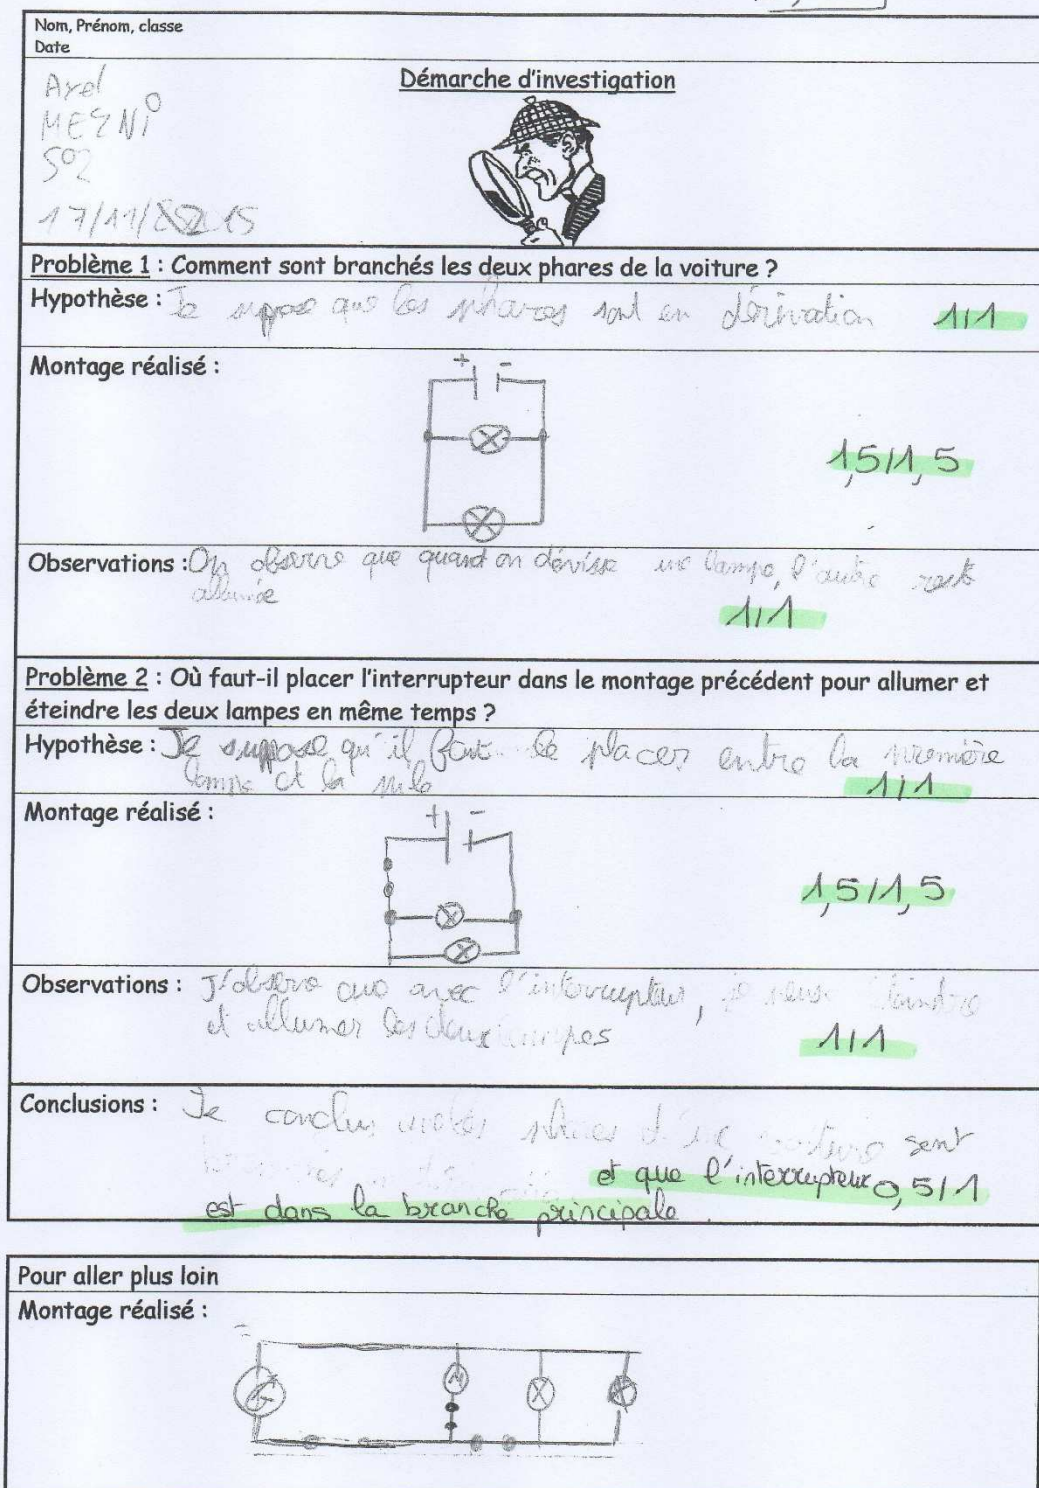 Nom, Prénom, classe
Date
Axel
MEZNI
502
17/11/ 2015
Démarche d'investigation
Problème 1 : Comment sont branchés les deux phares de la voiture ?
Hypothèse : Je suppose que les phares sont en dérivation 1/1
Montage réalisé :
+ -
1,5/1,5
Observations : On observe que quand on dévisse une lampe, l'autre reste
allumée
1/1
Problème 2 : Où faut-il placer l'interrupteur dans le montage précédent pour allumer et
éteindre les deux lampes en même temps ?
Hypothèse : Je suppose qu'il faut le placer entre la première
lampe et la pile 1/1
Montage réalisé :
+ -
1,5/1,5
Observations : J'observe que avec l'interrupteur, je peux éteindre
et allumer les deux lampes 1/1
Conclusions : Je conclus que les phares d'une voiture sont
branchés en dérivation
et que l'interrupteur 0,5/1
est dans la branche principale.
Pour aller plus loin
Montage réalisé :
G M